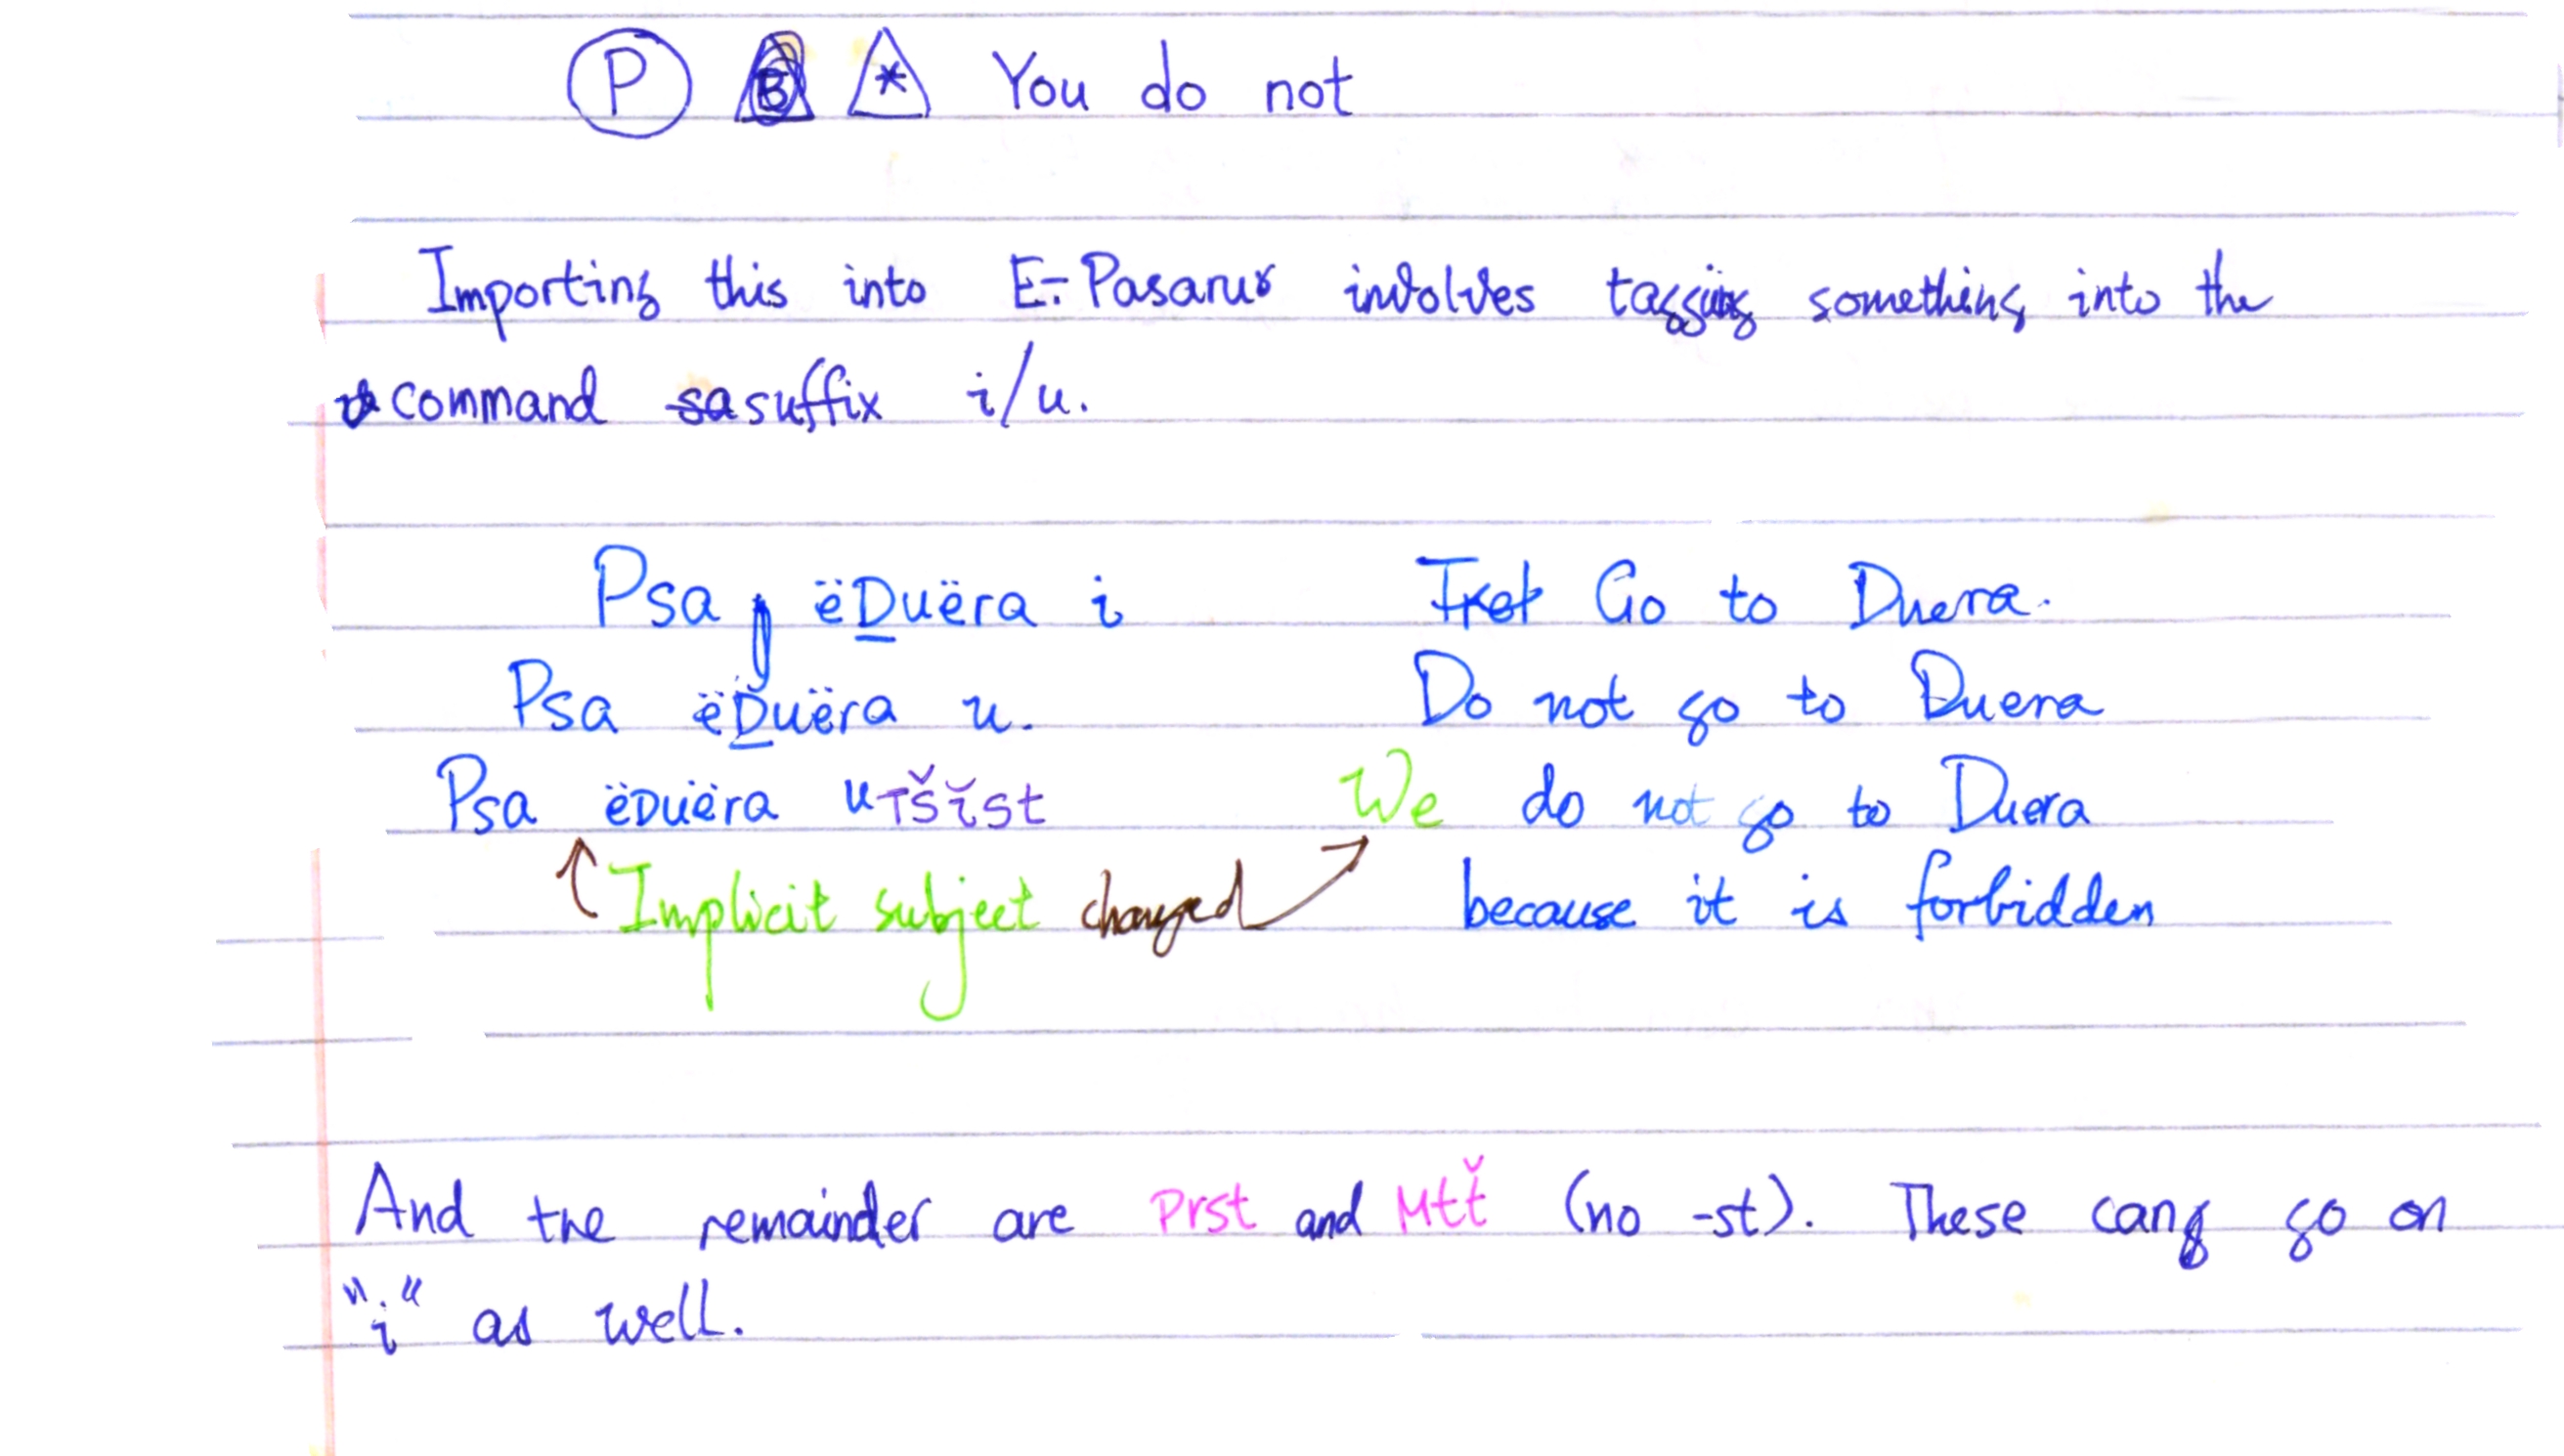 P B * You do not
Importing this into E-Pasarur involves tagging something into the
command sa suffix i/u.
Psa ëDuëra i Go to Duera.
Psa ëDuëra u. Do not go to Duera
Psa ëDuëra utšĭst We do not go to Duera
Implicit subject changed because it is forbidden
And the remainder are Prst and Mtť (no -st). These can go on
"i" as well.